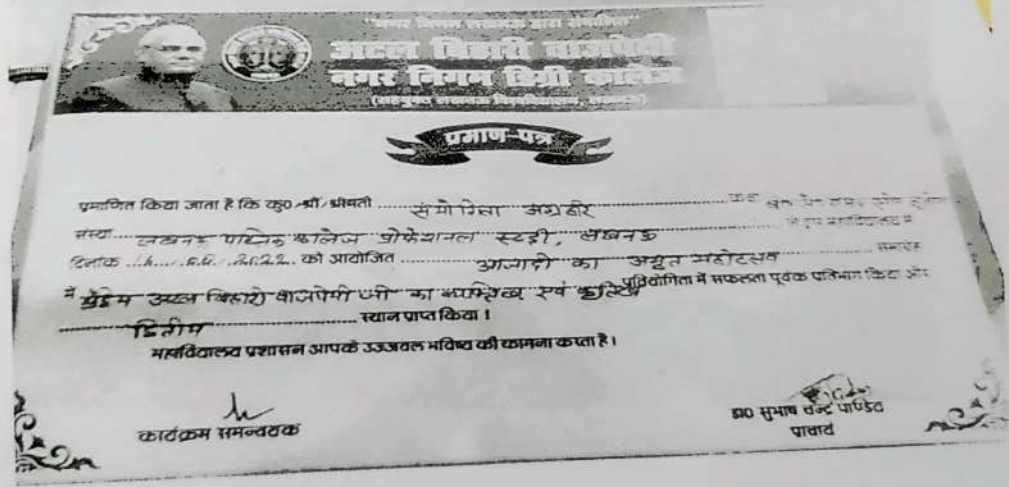 "नगर निगम लखनऊ द्वारा संचालित"
अटल बिहारी वाजपेयी
नगर निगम डिग्री कालेज
(सहयुक्त लखनऊ विश्वविद्यालय, लखनऊ)
प्रमाण-पत्र
प्रमाणित किया जाता है कि कु0/श्री/श्रीमती
संस्था लखनऊ पब्लिक कालेज प्रोफेशनल स्टडी, लखनऊ
दिनांक 2022 को आयोजित आजादी का अमृत महोत्सव
में अटल बिहारी वाजपेयी जी का व्यक्तित्व एवं प्रतियोगिता में सफलता पूर्वक प्रतिभाग किया और
द्वितीय स्थान प्राप्त किया।
महाविद्यालय प्रशासन आपके उज्जवल भविष्य की कामना करता है।
कार्यक्रम समन्वयक
डा0 सुभाष चन्द्र पाण्डेय
प्राचार्य